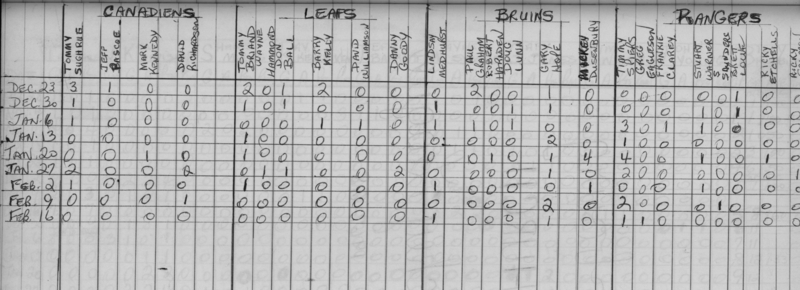 CANADIENS LEAFS BRUINS RANGERS
TOMMY SHEHRUE JEFF KENNEDY MARK DAVID RICHARDSON TOMMY BRIAND WAYNE DOUG BALL BARRY KELLY DAVID WILLIAMSON DANNY GOODY LINDSAY MEDHURST PAUL GRAHAM ROBERT DOUG LUNN GARY HOPE DUSENBURY TIMMY GREG FERGUSON FRANKIE CLAREY STUART WARNER BRETT RICKY ETCHELLS RICKY
DEC. 23 3 1 0 0 2 0 1 2 0 0 0 2 0 0 1 0 0 0 0 0 0 1 0 0
DEC. 30 1 0 0 0 1 0 1 0 0 0 1 0 0 1 1 0 0 0 0 1 0 1 0 0
JAN. 6 1 0 0 0 0 0 0 1 1 0 1 1 0 1 0 0 3 0 1 1 0 0 0 0
JAN. 13 0 0 0 0 1 0 0 0 0 0 0 0 0 0 2 0 1 0 0 0 0 0 0 0
JAN. 20 0 0 1 0 1 0 0 0 0 0 0 0 1 0 1 4 4 0 0 1 0 0 1 0
JAN. 27 2 0 0 2 0 1 1 0 0 2 0 0 0 0 1 0 2 0 0 0 0 0 0 1
FEB. 2 1 0 0 0 1 0 0 0 0 0 1 0 0 0 0 1 0 0 0 1 0 0 0 0
FEB. 9 0 0 0 1 0 0 0 0 0 0 0 0 0 0 2 0 2 0 0 0 1 0 0 0
FEB. 16 0 0 0 0 0 0 0 0 0 0 1 0 0 0 1 0 1 1 0 0 0 0 0 0